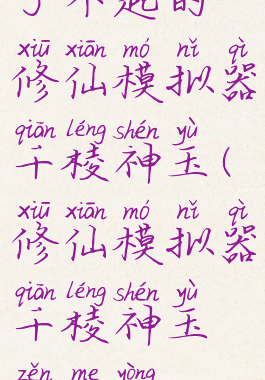 了不起的
xiū xiān mó nǐ qì
修仙模拟器
qiān léng shén yù
千棱神玉(
xiū xiān mó nǐ qì
修仙模拟器
qiān léng shén yù
千棱神玉
zěn me yòng